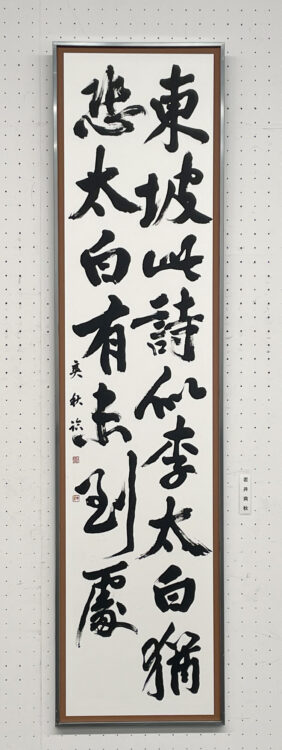 東坡此詩似李太白猶
恐太白有未到處
爽秋臨